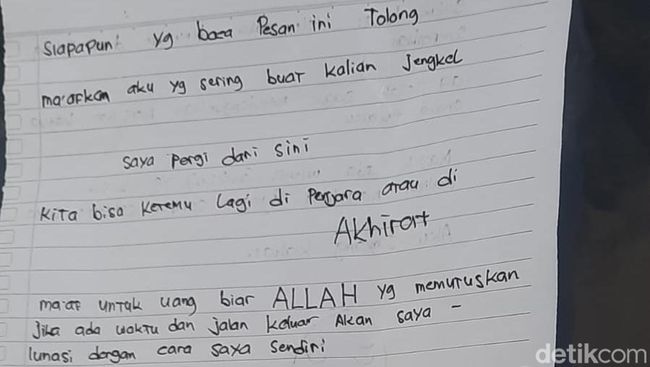 Siapapun yg baca Pesan ini Tolong
ma'afkan aku yg sering buat kalian Jengkel
saya pergi dari sini
kita bisa ketemu lagi di Penjara atau di
Akhirat
ma'af untuk uang biar ALLAH yg memutuskan
Jika ada waktu dan jalan keluar Akan saya -
lunasi dengan cara saya sendiri
detikcom